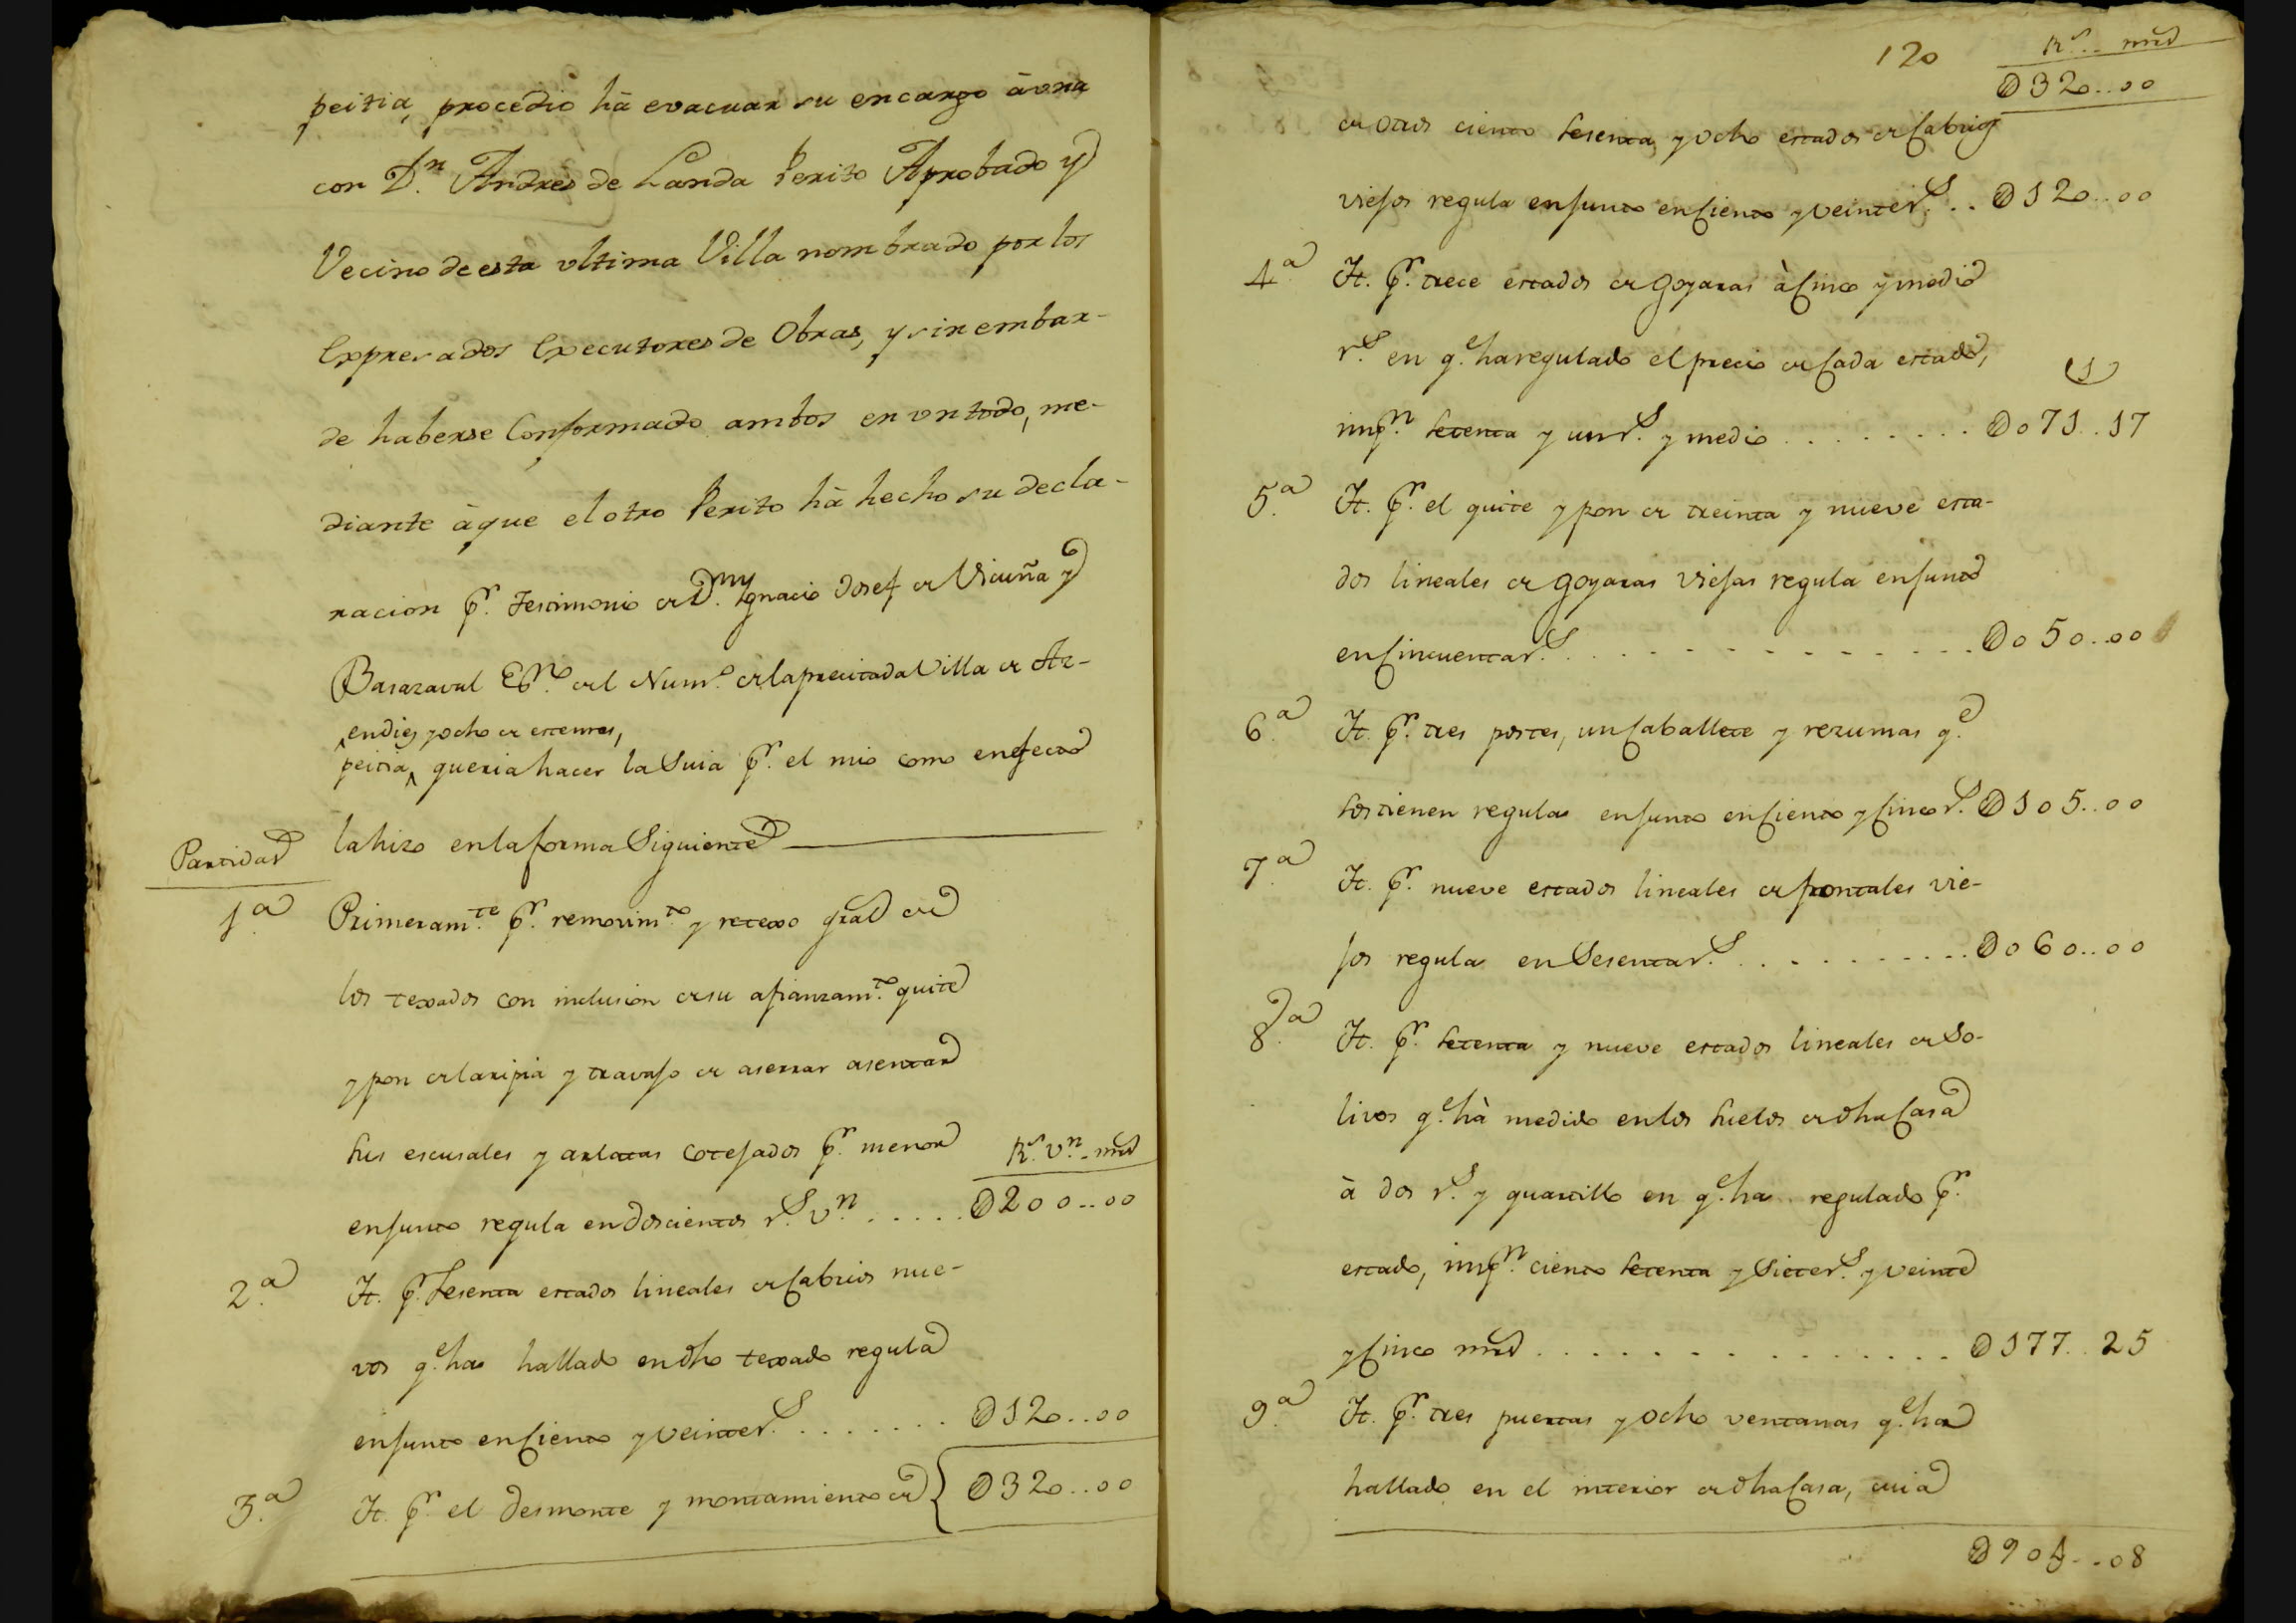 peitia, procedio hà evacuar su encargo àuna
con D.n Andres de Landa Perito Aprobado y
Vecino de esta ultima Villa nombrado por los
Expresados Executores de Obras, y sin embar-
de haberse Conformado ambos en un todo, me-
diante àque el otro Perito hà hecho su decla-
racion p.r Testimonio de D.n Ygnacio Josef de Vicuña y
Basazaval Es.no del Num.o de la precitada Villa de Az-
endiez y ocho de este mes,
peitia, queria hacer la Suia p.r el mio como en efecto
la hizo en la forma Siguiente
Partidas
1.a Primeram.te p.r removim.to y retexo gral de
los texados con inclusion de su afianzam.to quite
y pon de laripia y travajo de aserrar asentar
sus escusales y arlatas cotejados p.r menor
R.s v.n mrs
en junto regula en Doscientos r.s v.n ..... D200..00
2.a It. p.r Sesenta estados lineales de Cabrios nue-
vos q.e ha hallado en dho texado regula
en junto en Ciento y Veinte r.s ....... D120..00
3.a It. p.r el desmonte y montamiento de { D320..00
120
R.s .. mrs
D320..00
de otros ciento sesenta y ocho estados de Cabrios
viejos regula en junto en Ciento y veinte r.s .. D120..00
4.a It. p.r trece estados de Goyaras à Cinco y medio
r.s en q.e ha regulado el precio de Cada estado,
imp.n setenta y un r.s y medio ........ D071..17
5.a It. p.r el quite y pon de treinta y nueve esta-
dos lineales de Goyaras Viejas regula en junto
en Cincuenta r.s .............. D050..00
6.a It. p.r tres postes, un Caballete y rezumas q.e
sostienen regula en junto en Ciento y Cinco r.s D105..00
7.a It. p.r nueve estados lineales de frontales vie-
jos regula en Sesenta r.s ........... D060..00
8.a It. p.r setenta y nueve estados lineales de So-
livos q.e hà medido en los suelos de dha Casa
à dos r.s y quartillo en q.e ha regulado p.r
estado, imp.n ciento setenta y Siete r.s y veinte
y Cinco mrs ................ D177..25
9.a It. p.r tres puertas y ocho ventanas q.e ha
hallado en el interior de dha Casa, cuia
D904...08